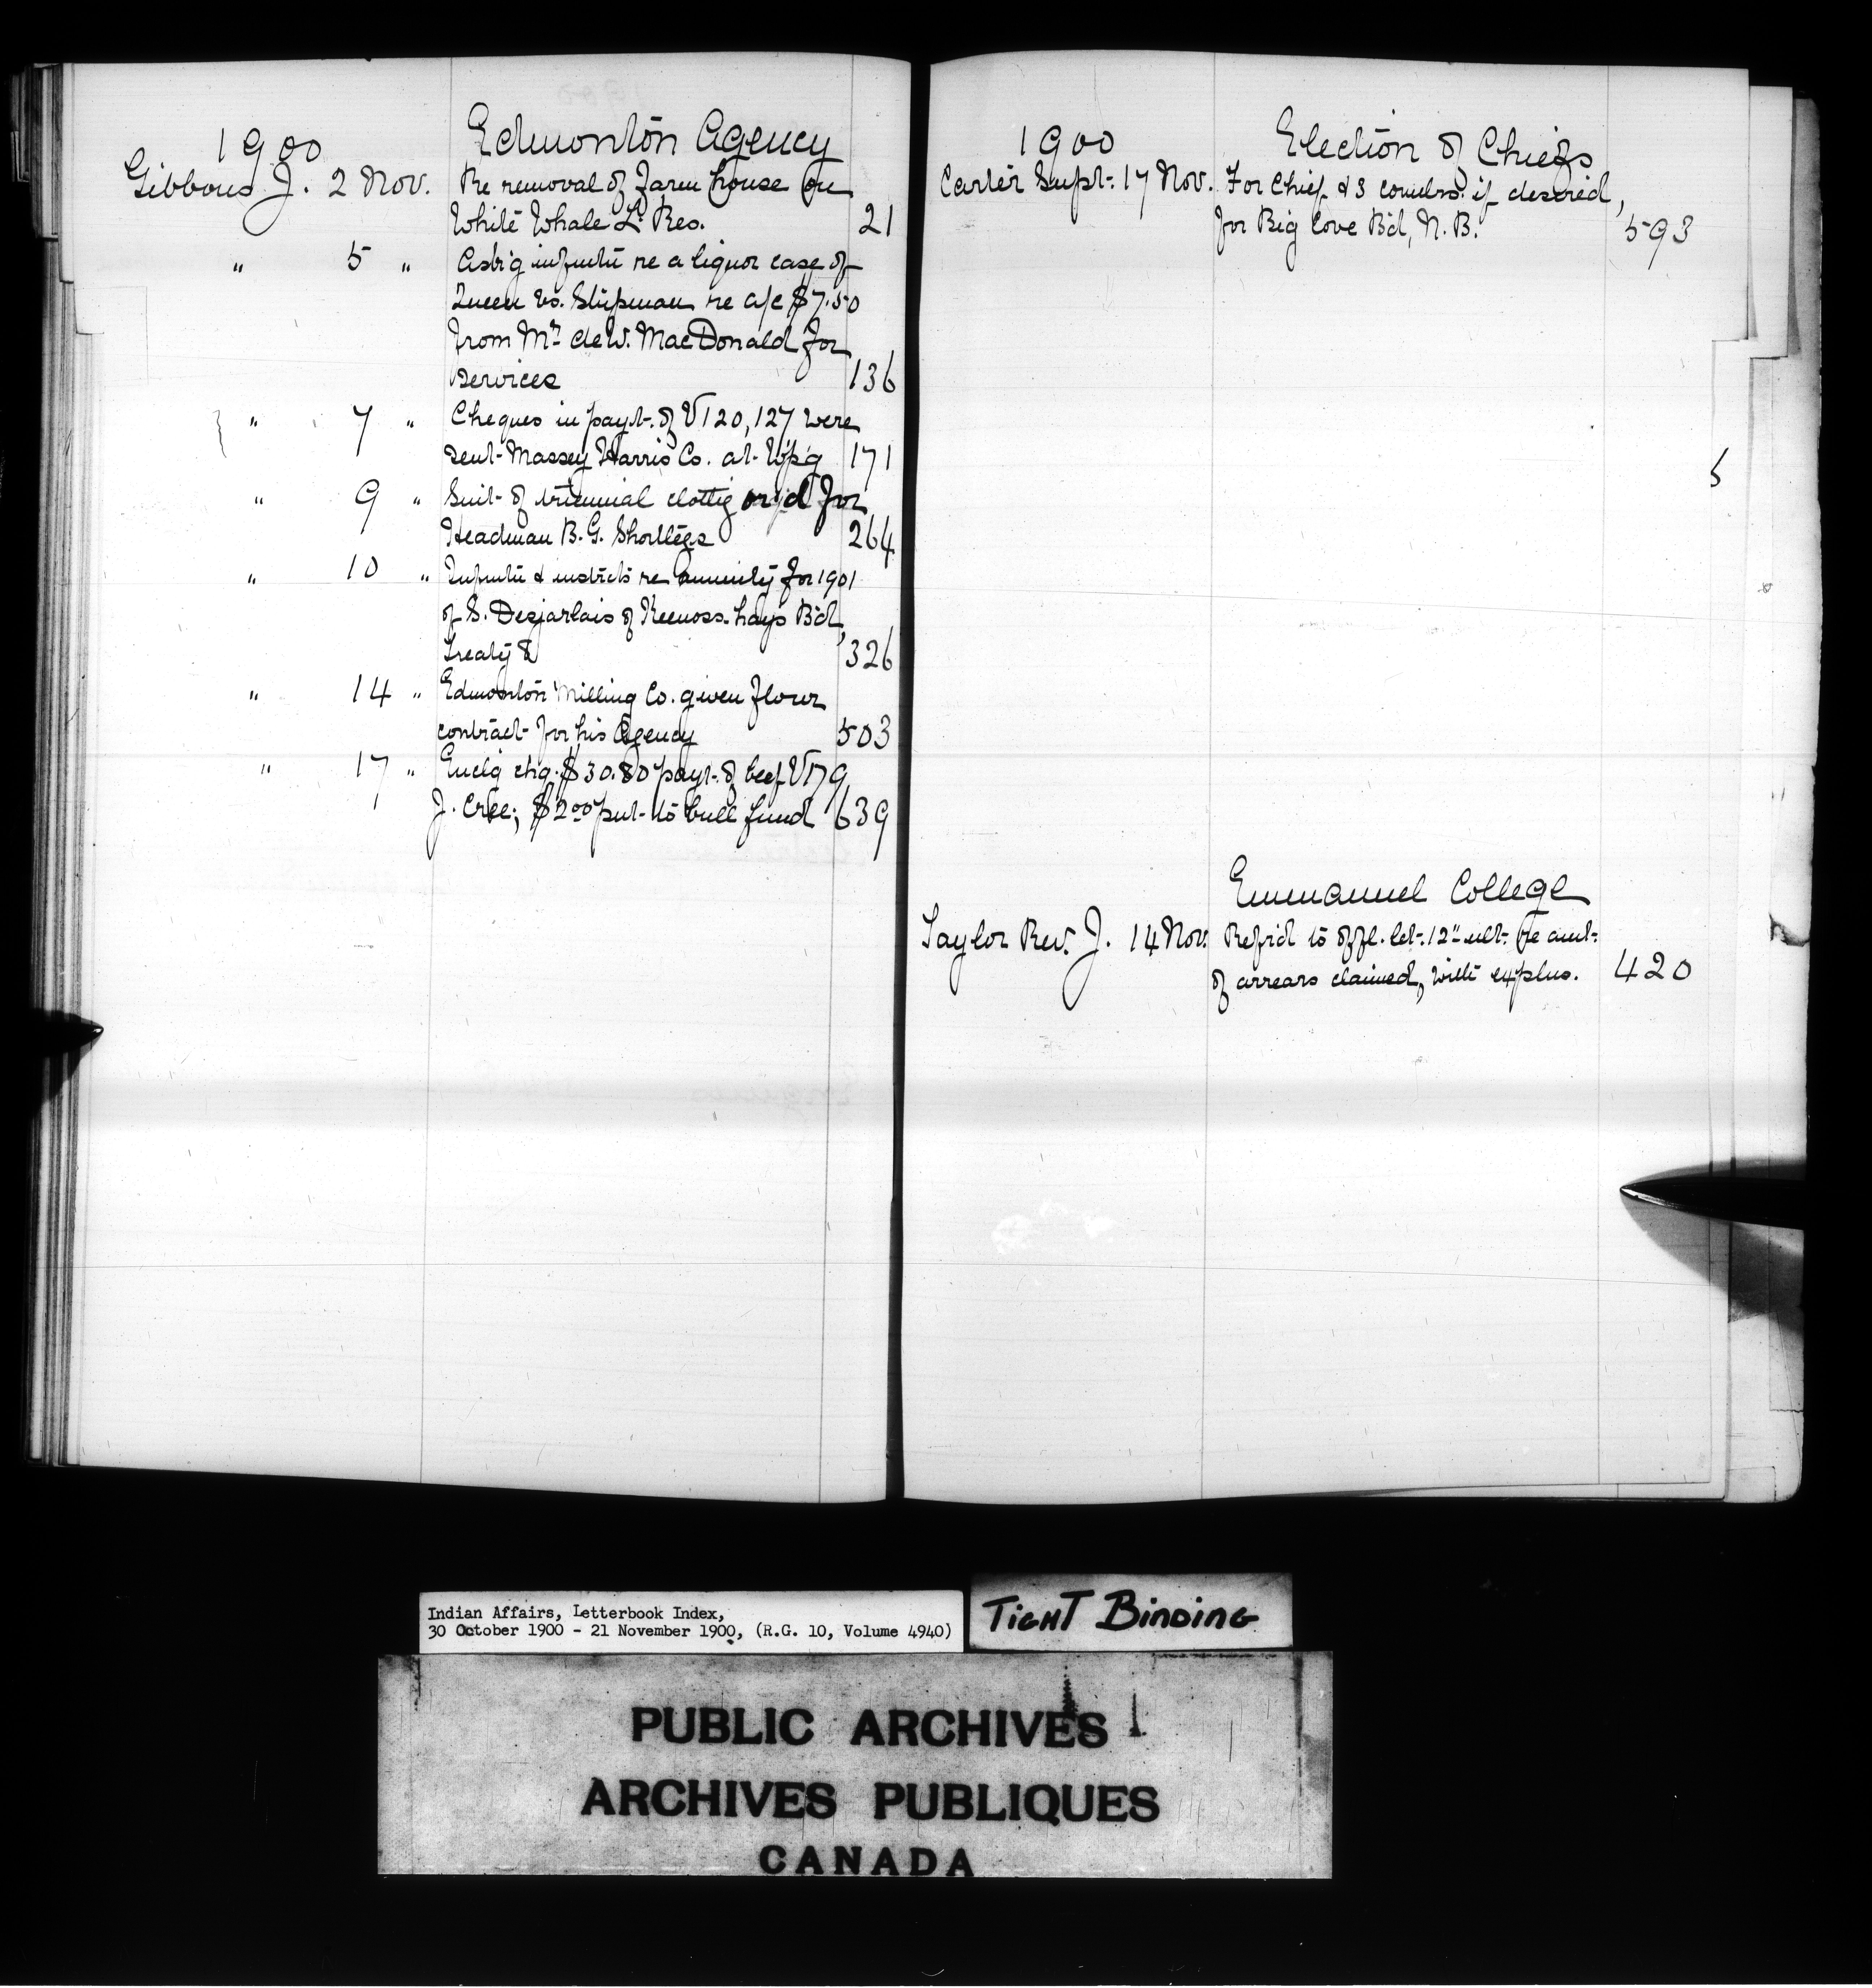 1900 Edmonton Agency
Gibbons J. 2 Nov. Re removal of farm house on
White Whale L. Res. 21
" 5 " Ask'g infmtn re a liquor case of
Queen vs. Shipman re a/c $7.50
from Mr. de W. MacDonald for
services 136
" 7 " Cheques in payt. of V120, 127 were
sent Massey Harris Co. at Wp'g 171
" 9 " Suit of triennial clothg ord'd for
Headman B. G. Shortlegs 264
" 10 " Infmtn & instrcts re annuity for 1901
of S. Desjarlais of Keenooshayo Bd,
Treaty 8 326
" 14 " Edmonton Milling Co. given flour
contract for his Agency 503
" 17 " Enclg chq. $30.80 payt. of beef V179
J. Cree; $2.00 put to bull fund 639
1900 Election of Chiefs
Carter Supt. 17 Nov. For Chief & 3 counlrs. if desired,
for Big Cove Bd, N. B. 593
Emmanuel College
Taylor Rev. J. 14 Nov. Refr'd to offl. let. 12" ult. re amt.
of arrears claimed, with explns. 420
Indian Affairs, Letterbook Index,
30 October 1900 - 21 November 1900, (R.G. 10, Volume 4940)
TIGHT BINDING
PUBLIC ARCHIVES
ARCHIVES PUBLIQUES
CANADA